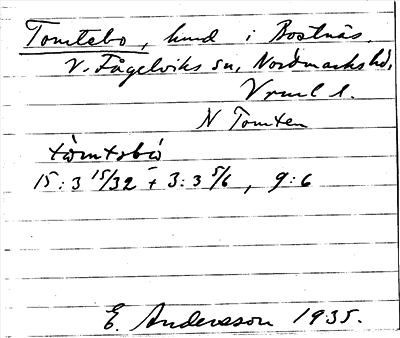 Tomtebo, hmd i Bostnäs.
V. Fågelviks sn, Nordmarks hd,
Vrml l.
N Tomten
15:3 15/32 + 3:3 5/6, 9:6
E. Andersson 1935.